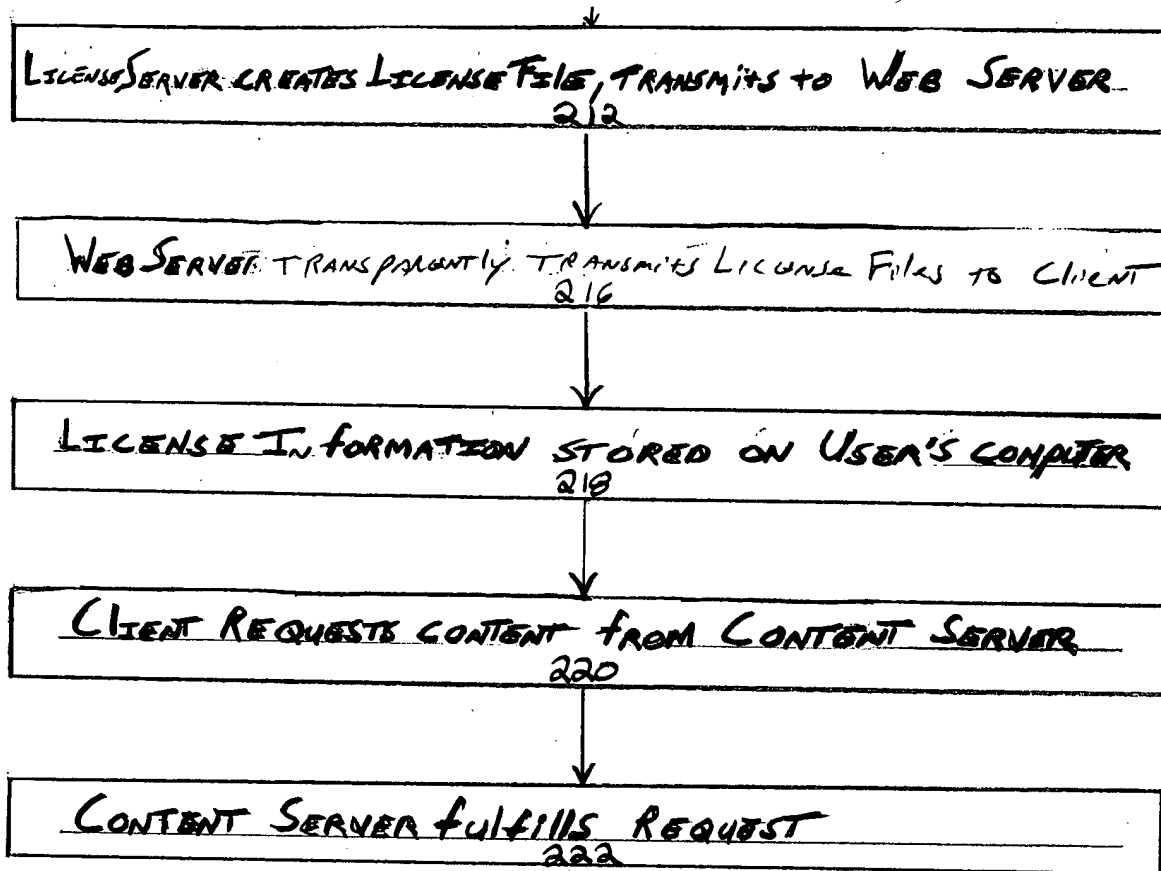 LICENSE SERVER CREATES LICENSE FILE, TRANSMITS TO WEB SERVER
212
WEB SERVER TRANSPARENTLY TRANSMITS LICENSE FILES TO CLIENT
216
LICENSE INFORMATION STORED ON USER'S COMPUTER
218
CLIENT REQUESTS CONTENT FROM CONTENT SERVER
220
CONTENT SERVER fulfills REQUEST
222